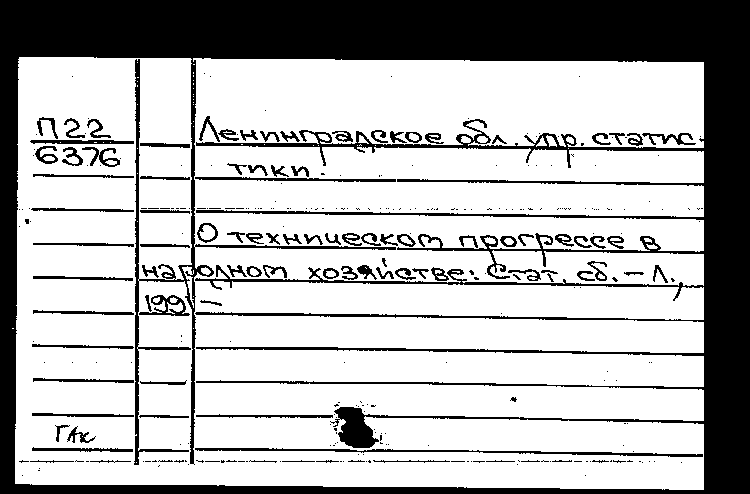 П22
6376
Ленинградское обл. упр. статис-
тики.
О техническом прогрессе в
народном хозяйстве: Стат. сб. – Л.,
1991 –